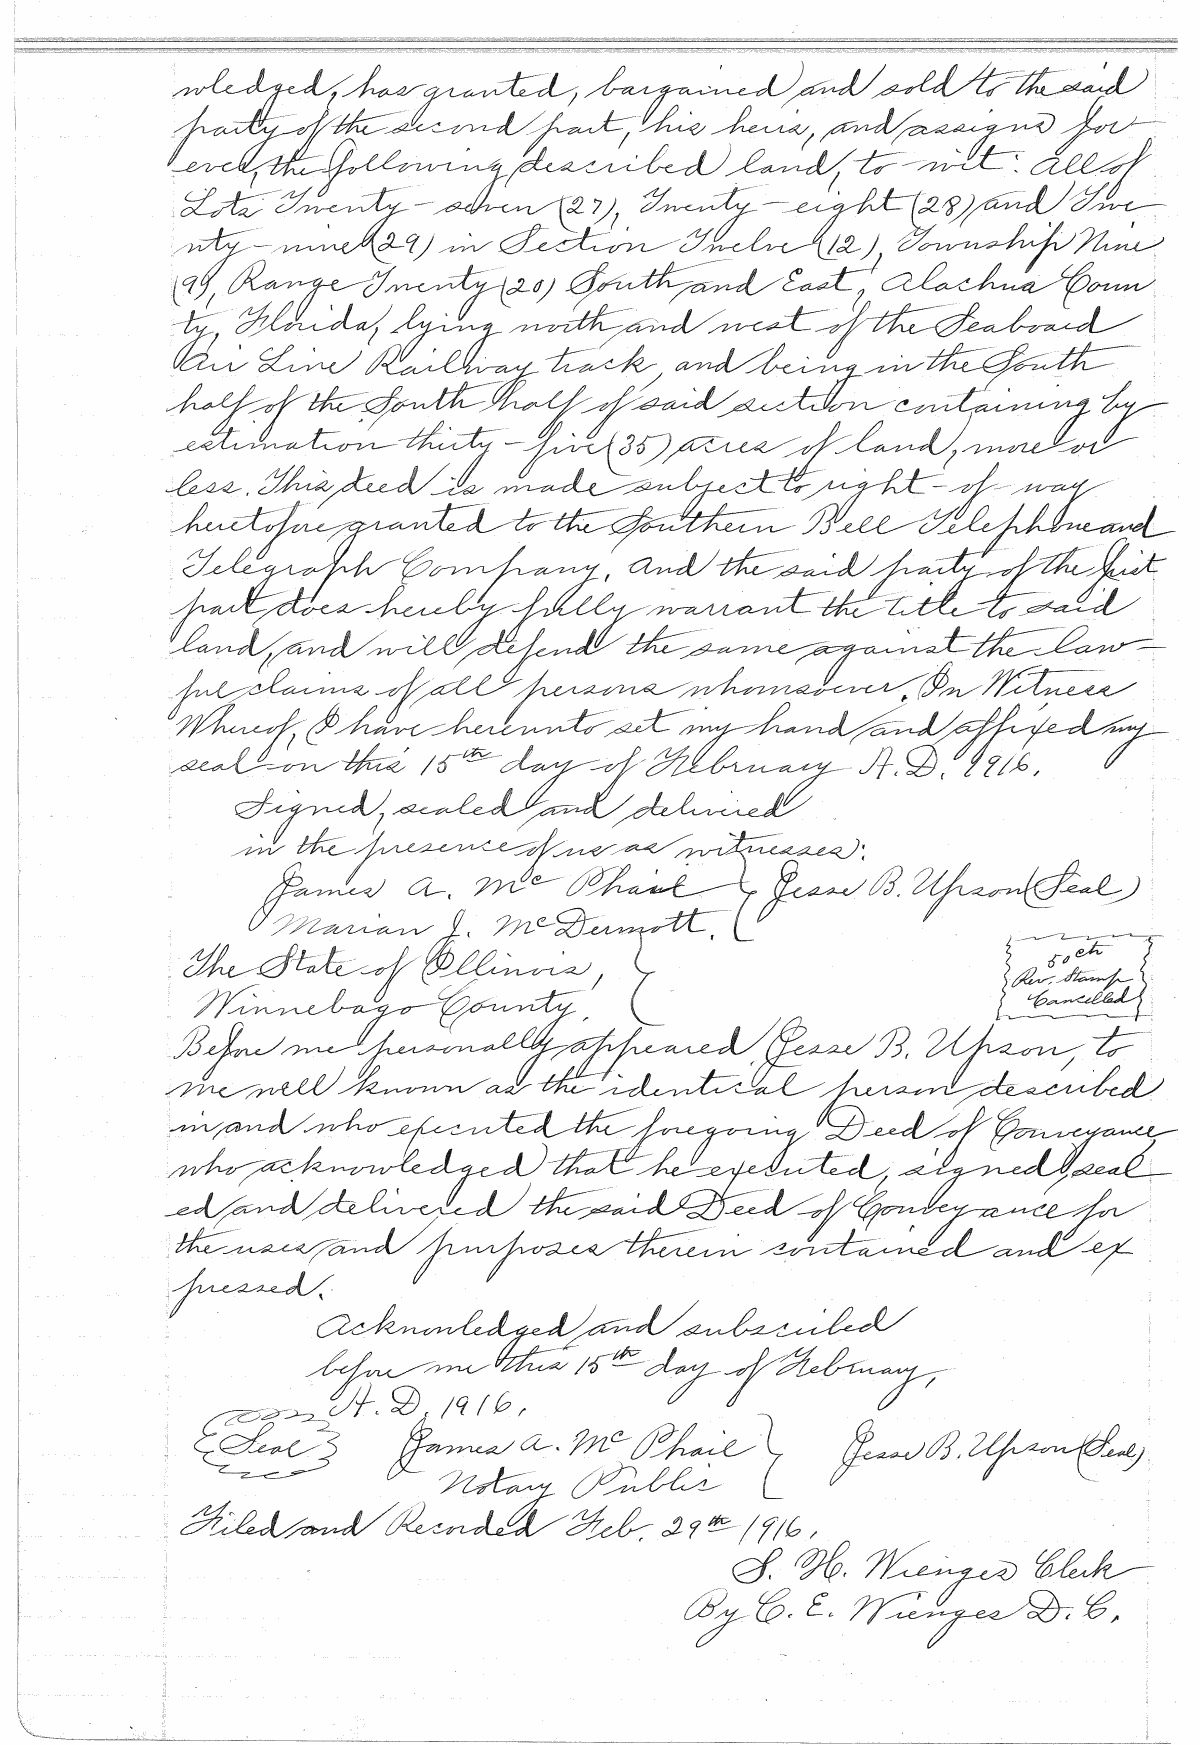 wledged, has granted, bargained and sold to the said
party of the second part, his heirs, and assigns for
ever, the following described land, to-wit: All of
Lots Twenty-seven (27), Twenty-eight (28) and Twe
nty-nine (29) in Section Twelve (12), Township Nine
(9), Range Twenty (20) South and East, Alachua Coun
ty, Florida, lying north and west of the Seaboard
Air Line Railway track, and being in the South
half of the South half of said section containing by
estimation thirty-five (35) acres of land, more or
less. This deed is made subject to right-of-way
heretofore granted to the Southern Bell Telephone and
Telegraph Company. And the said party of the first
part does hereby fully warrant the title to said
land, and will defend the same against the law-
ful claims of all persons whomsoever. In Witness
Whereof, I have hereunto set my hand and affixed my
seal on this 15th day of February A. D. 1916.
Signed, sealed and delivered
in the presence of us as witnesses:
James A. McPhail } Jesse B. Upson (Seal)
Marian J. McDermott.
The State of Illinois,
Winnebago County.
50cts
Rev. Stamp
Cancelled
Before me personally appeared Jesse B. Upson, to
me well known as the identical person described
in and who executed the foregoing Deed of Conveyance,
who acknowledged that he executed, signed, seal-
ed and delivered the said Deed of Conveyance for
the uses and purposes therein contained and ex
pressed.
Acknowledged and subscribed
before me this 15th day of February,
A. D. 1916.
Seal James A. McPhail } Jesse B. Upson (Seal)
Notary Public
Filed and Recorded Feb. 29th 1916.
S. H. Wienges Clerk
By C. E. Wienges D. C.